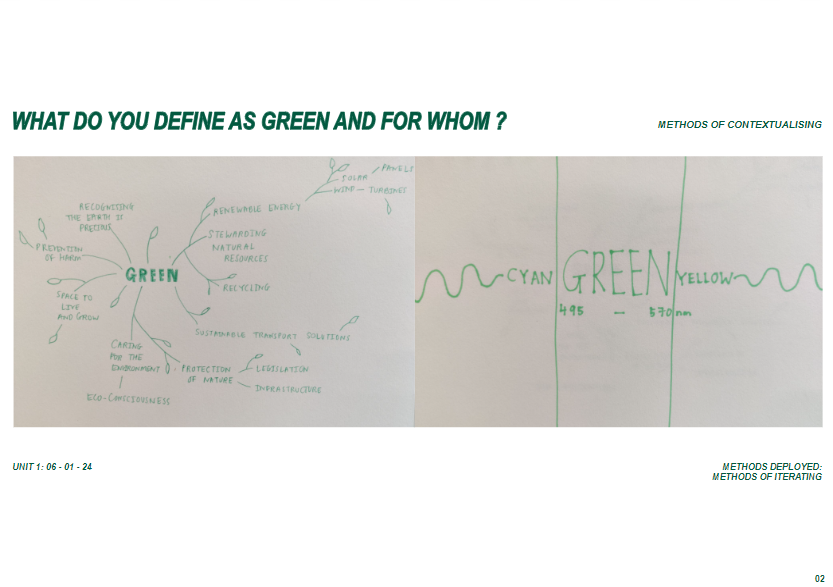 WHAT DO YOU DEFINE AS GREEN AND FOR WHOM ?
METHODS OF CONTEXTUALISING
SOLAR
PANELS
WIND
TURBINES
RENEWABLE ENERGY
RECOGNISING
THE EARTH IS
PRECIOUS
STEWARDING
NATURAL
RESOURCES
PREVENTION
OF HARM
GREEN
RECYCLING
SPACE TO
LIVE
AND GROW
SUSTAINABLE TRANSPORT SOLUTIONS
CARING
FOR THE
ENVIRONMENT
PROTECTION
OF NATURE
LEGISLATION
INFRASTRUCTURE
ECO-CONSCIOUSNESS
CYAN GREEN YELLOW
495 — 570nm
UNIT 1: 06 - 01 - 24
METHODS DEPLOYED:
METHODS OF ITERATING
02